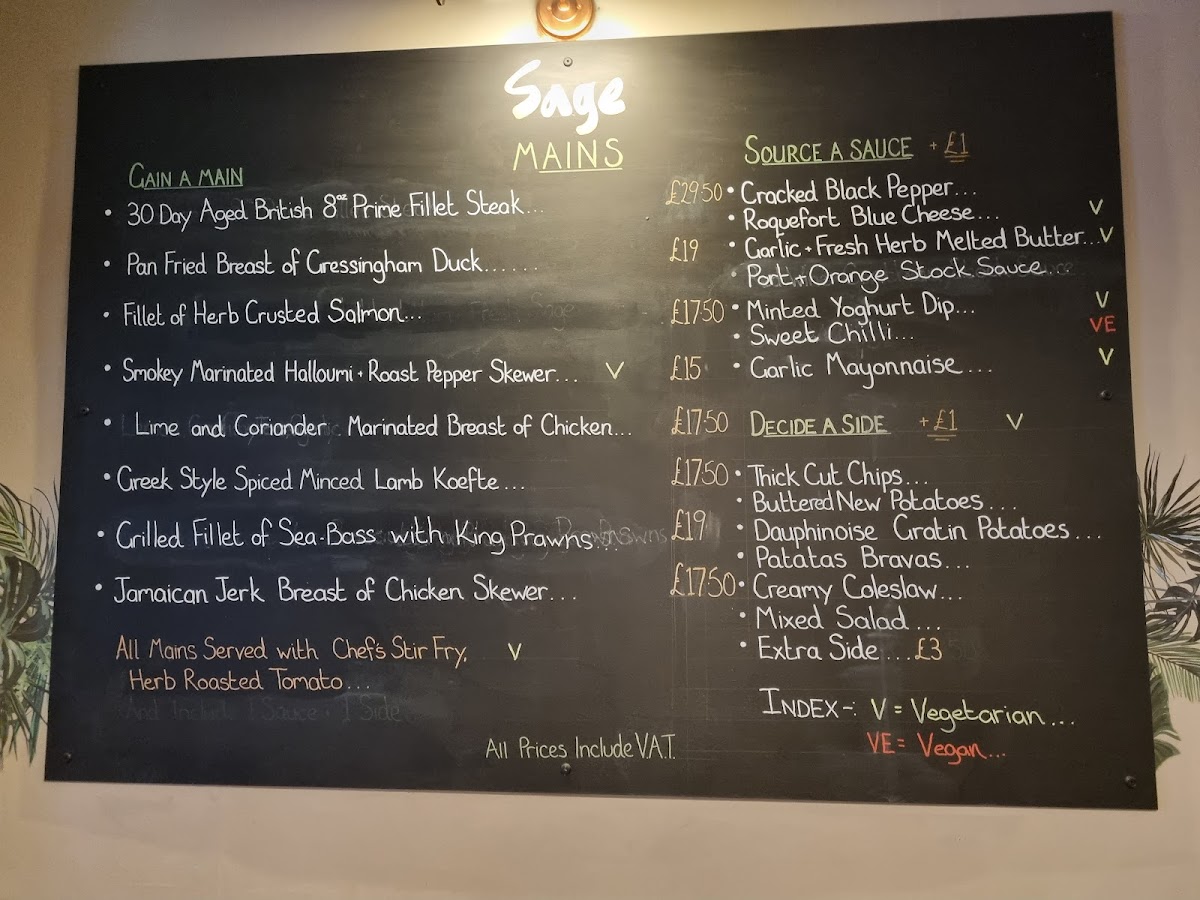 Sage
MAINS
GAIN A MAIN
• 30 Day Aged British 8oz Prime Fillet Steak... £29·50
• Pan Fried Breast of Gressingham Duck...... £19
• Fillet of Herb Crusted Salmon... £17·50
• Smokey Marinated Halloumi + Roast Pepper Skewer... V £15
• Lime and Coriander Marinated Breast of Chicken... £17·50
• Greek Style Spiced Minced Lamb Koefte... £17·50
• Grilled Fillet of Sea-Bass with King Prawns... £19
• Jamaican Jerk Breast of Chicken Skewer... £17·50
All Mains Served with Chef's Stir Fry, V
Herb Roasted Tomato...
And Include 1 Sauce + 1 Side
SOURCE A SAUCE + £1
• Cracked Black Pepper...
• Roquefort Blue Cheese... V
• Garlic + Fresh Herb Melted Butter... V
• Port + Orange Stock Sauce...
• Minted Yoghurt Dip... V
• Sweet Chilli... VE
• Garlic Mayonnaise... V
DECIDE A SIDE + £1 V
• Thick Cut Chips...
• Buttered New Potatoes...
• Dauphinoise Gratin Potatoes...
• Patatas Bravas...
• Creamy Coleslaw...
• Mixed Salad...
• Extra Side... £3
INDEX-: V = Vegetarian...
VE = Vegan...
All Prices Include V.A.T.